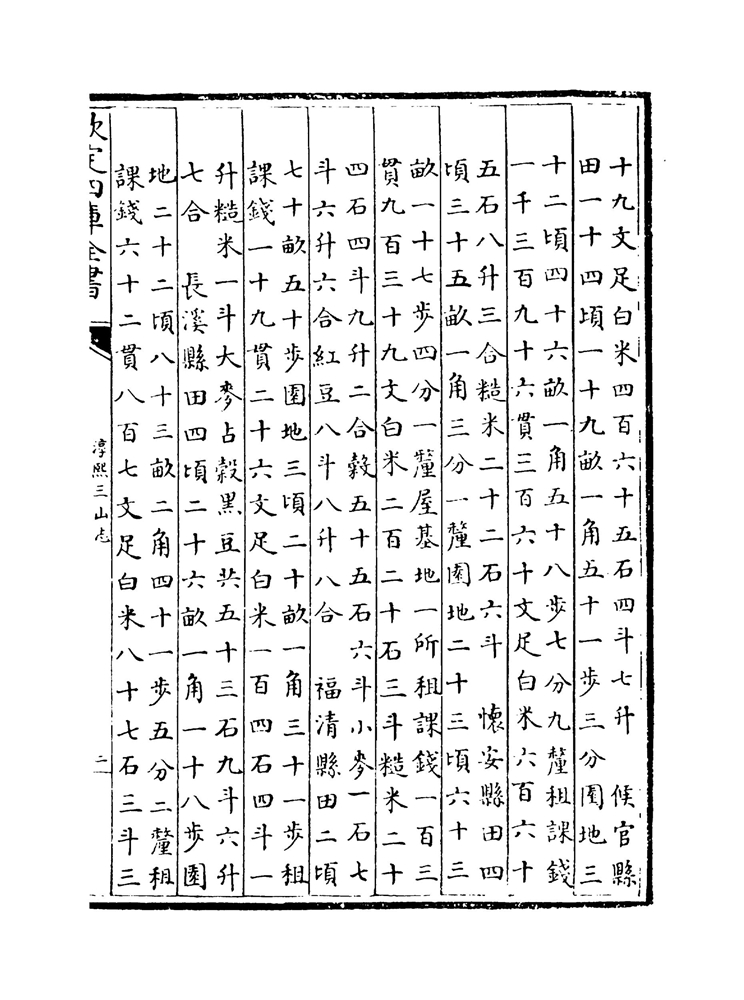 十九文足白米四百六十五石四斗七升　候官縣
田一十四頃一十九畝一角五十一步三分園地三
十二頃四十六畝一角五十八步七分九釐租課錢
一千三百九十六貫三百六十文足白米六百六十
五石八升三合糙米二十二石六斗　懷安縣田四
頃三十五畝一角三分一釐園地二十三頃六十三
畝一十七步四分一釐屋基地一所租課錢一百三
貫九百三十九文白米二百二十石三斗糙米二十
四石四斗九升二合榖五十五石六斗小麥一石七
斗六升六合紅豆八斗八升八合　福清縣田二頃
七十畝五十步園地三頃二十畝一角三十一步租
課錢一十九貫二十六文足白米一百四石四斗一
升糙米一斗大麥占榖黑豆共五十三石九斗六升
七合　長溪縣田四頃二十六畝一角一十八步園
地二十二頃八十三畝二角四十一步五分二釐租
課錢六十二貫八百七文足白米八十七石三斗三
欽定四庫全書
淳熙三山志
二